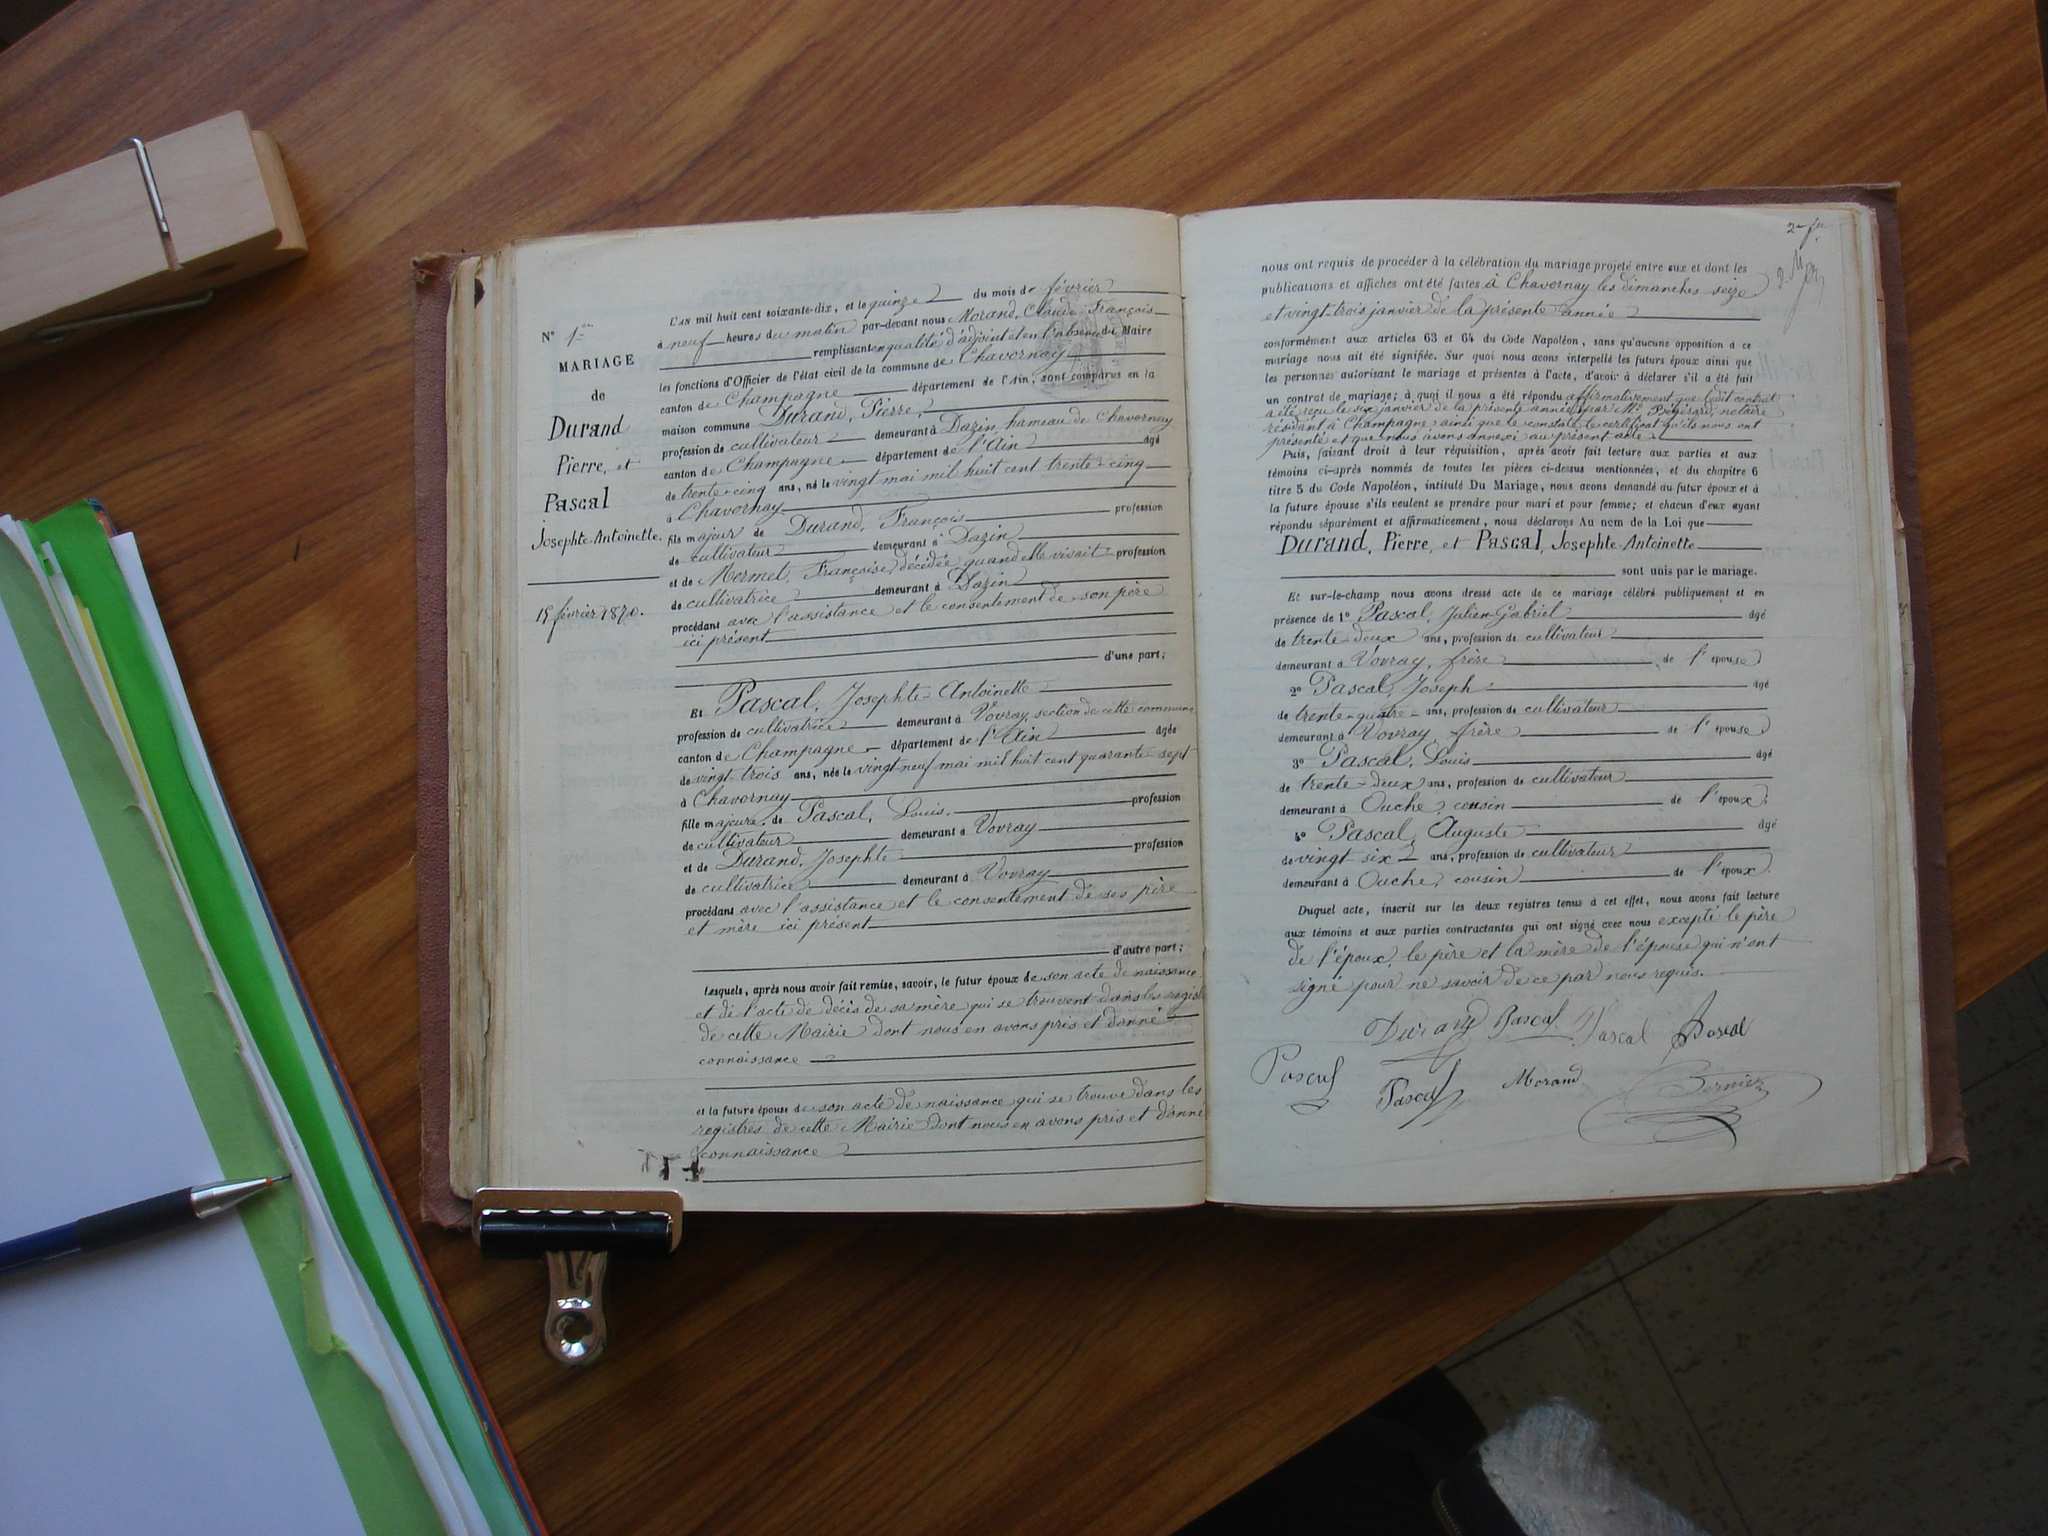 N° 1er
MARIAGE
de
Durand
Pierre, et
Pascal
Josephte-Antoinette.
15 février 1870.
L'AN mil huit cent soixante-dix, et le quinze du mois de février
à neuf heures du matin par-devant nous Morand, Claude-François
remplissant en qualité d'adjoint et en l'absence du Maire
les fonctions d'Officier de l'état civil de la commune de Chavornay
canton de Champagne département de l'Ain, sont comparus en la
maison commune Durand, Pierre,
profession de cultivateur demeurant à Dazin, hameau de Chavornay
canton de Champagne département de l'Ain âgé
de trente-cinq ans, né le vingt mai mil huit cent trente-cinq
à Chavornay
fils majeur de Durand, François profession
de cultivateur demeurant à Dazin
et de Mermet, Françoise, décédée, quand elle vivait profession
de cultivatrice demeurant à Dazin
procédant avec l'assistance et le consentement de son père
ici présent
d'une part;
Et Pascal, Josephte-Antoinette
profession de cultivatrice demeurant à Vovray, section de cette commune
canton de Champagne département de l'Ain âgée
de vingt-trois ans, née le vingt neuf mai mil huit cent quarante-sept
à Chavornay
fille majeure de Pascal, Louis, profession
de cultivateur demeurant à Vovray
et de Durand, Josephte profession
de cultivatrice demeurant à Vovray
procédant avec l'assistance et le consentement de ses père
et mère ici présent
d'autre part;
Lesquels, après nous avoir fait remise, savoir, le futur époux de son acte de naissance
et de l'acte de décès de sa mère qui se trouvent dans les
de cette Mairie dont nous en avons pris et donné
connaissance
et la future épouse de son acte de naissance qui se trouve dans les
registres de cette Mairie dont nous en avons pris et donné
connaissance
nous ont requis de procéder à la célébration du mariage projeté entre eux et dont les
publications et affiches ont été faites à Chavornay les dimanches seize
et vingt-trois janvier de la présente année
conformément aux articles 63 et 64 du Code Napoléon, sans qu'aucune opposition a ce
mariage nous ait été signifiée. Sur quoi nous avons interpellé les futurs époux ainsi que
les personnes autorisant le mariage et présentes à l'acte, d'avoir à déclarer s'il a été fait
un contrat de mariage; à quoi il nous a été répondu affirmativement que ledit contrat
a été reçu le six janvier de la présente année par Me notaire
résidant à Champagne ainsi que le constate le certificat qu'ils nous ont
présenté et que nous avons annexé au présent acte
Puis, faisant droit à leur réquisition, après avoir fait lecture aux parties et aux
témoins ci-après nommés de toutes les pièces ci-dessus mentionnées, et du chapitre 6
titre 5 du Code Napoléon, intitulé Du Mariage, nous avons demandé au futur époux et à
la future épouse s'ils veulent se prendre pour mari et pour femme; et chacun d'eux ayant
répondu séparément et affirmativement, nous déclarons Au nom de la Loi que
Durand, Pierre, et Pascal, Josephte-Antoinette
sont unis par le mariage.
Et sur-le-champ nous avons dressé acte de ce mariage célébré publiquement et en
présence de 1° Pascal, Julien-Gabriel âgé
de trente-deux ans, profession de cultivateur
demeurant à Vovray, frère de l'épouse
2° Pascal, Joseph âgé
de trente-quatre ans, profession de cultivateur
demeurant à Vovray frère de l'épouse
3° Pascal, Louis âgé
de trente-deux ans, profession de cultivateur
demeurant à Ouche, cousin de l'époux
4° Pascal, Auguste âgé
de vingt six ans, profession de cultivateur
demeurant à Ouche, cousin de l'époux.
Duquel acte, inscrit sur les deux registres tenus à cet effet, nous avons fait lecture
aux témoins et aux parties contractantes qui ont signé avec nous excepté le père
de l'époux, le père et la mère de l'épouse qui n'ont
signé pour ne savoir de ce par nous requis.
Durand Pascal Pascal Pascal
Pascal Pascal Morand Bernier